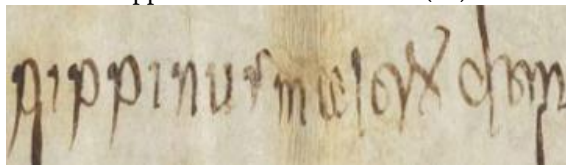 pippinus maior dom